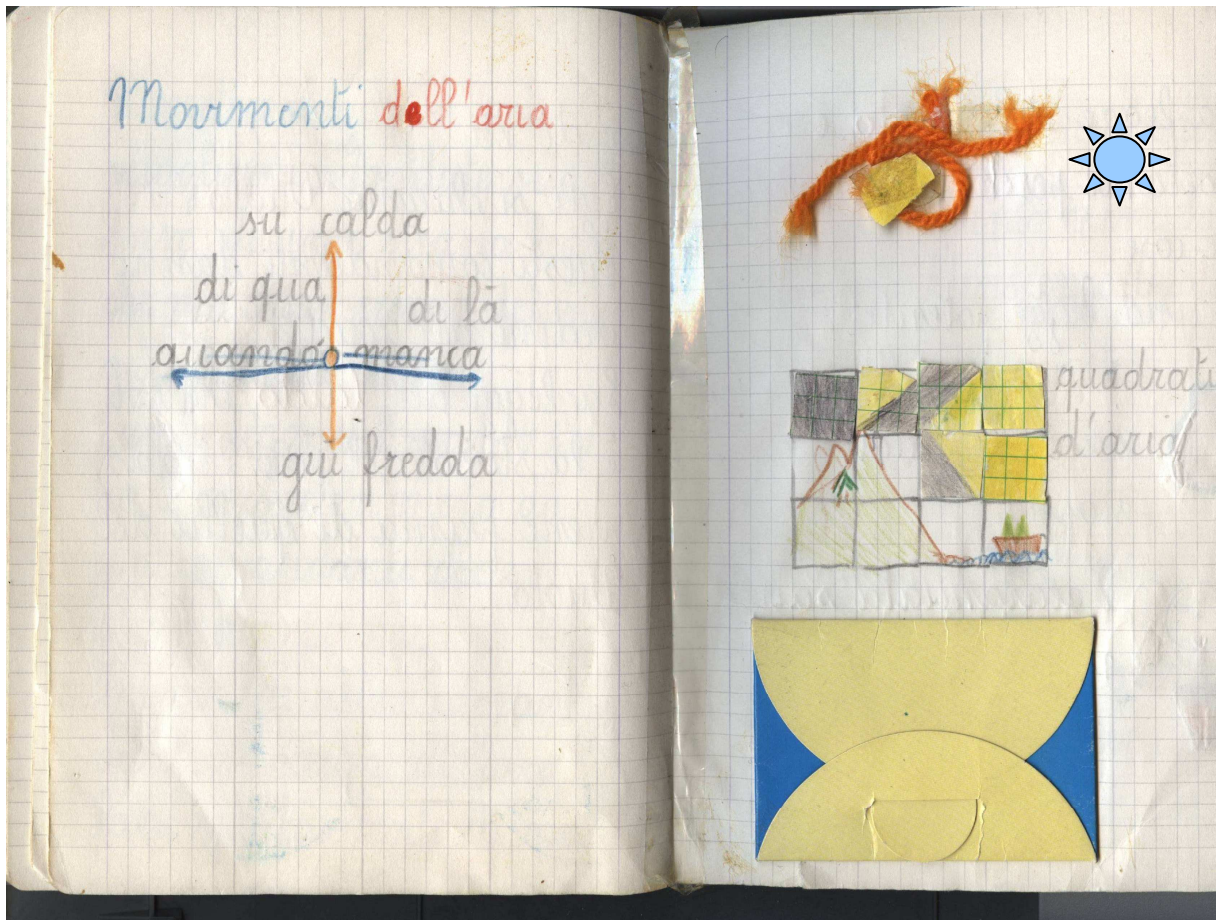 Movimenti dell'aria
su calda
di qua di là
quando manca
giu fredda
quadrati
d'aria